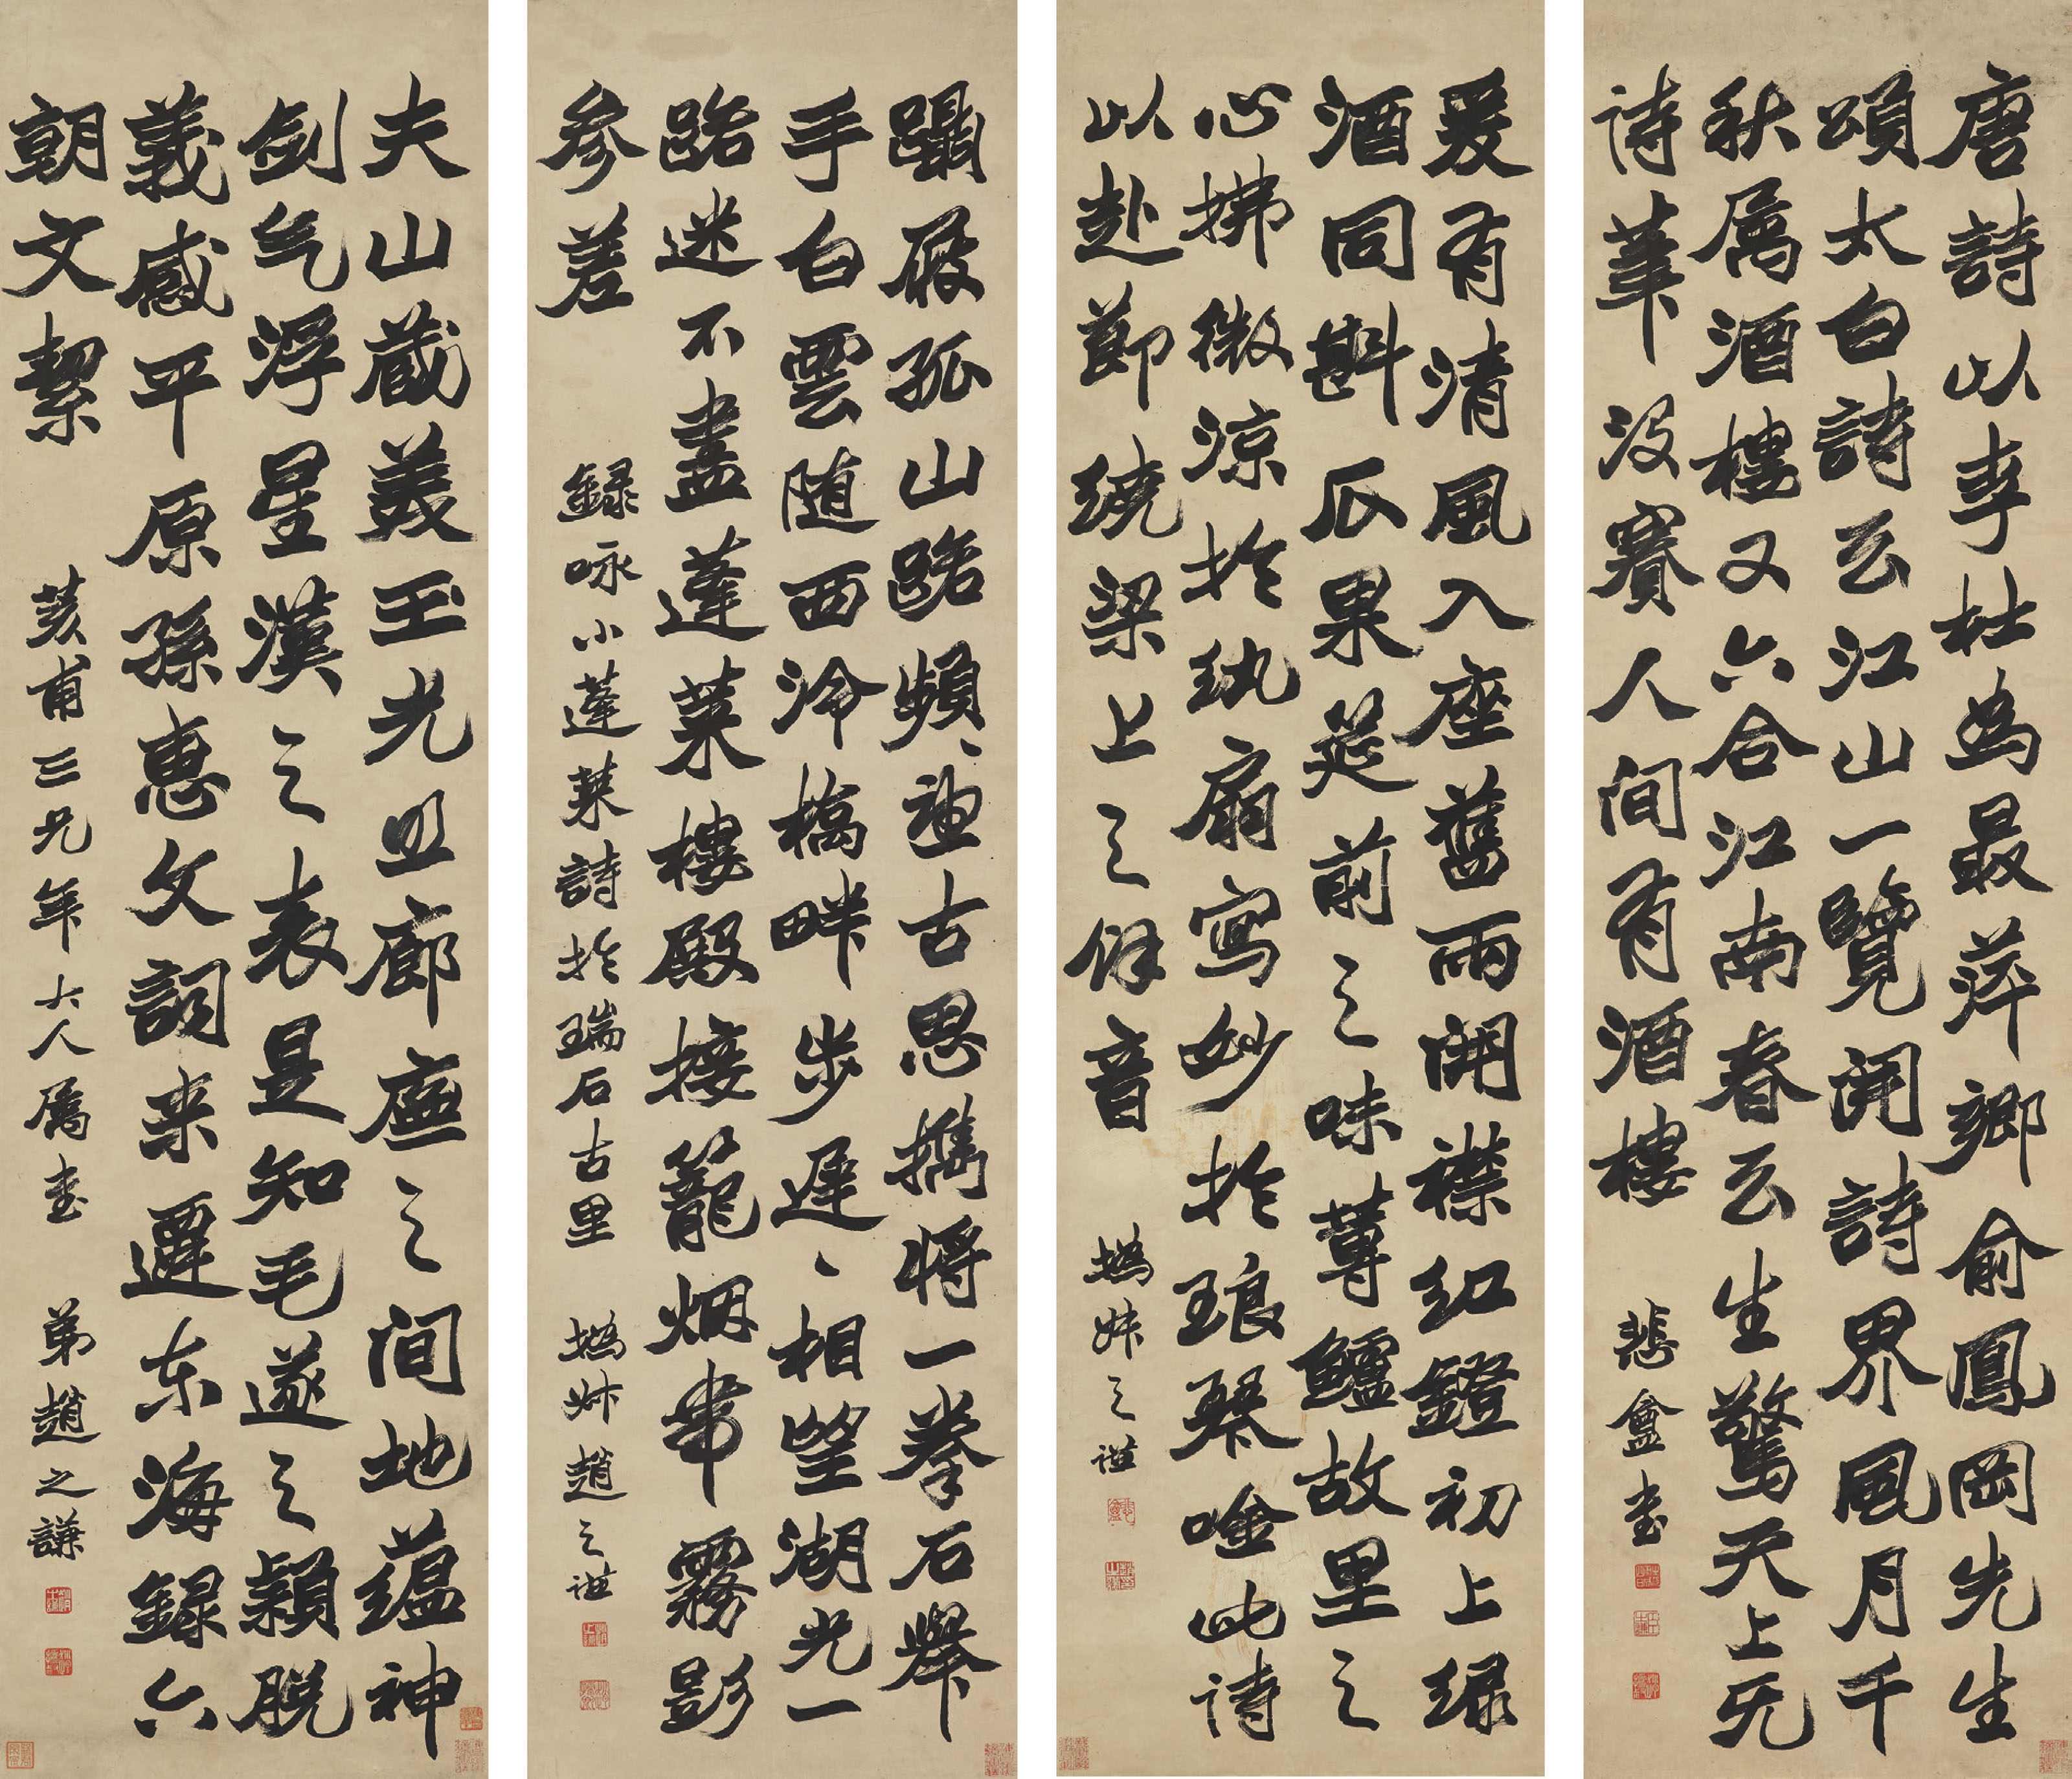 唐詩以李杜為最萍鄉俞鳳岡先生
頌太白詩云江山一覽開詩界風月千
秋屬酒樓又六合江南春云生驚天上无
诗筆没賽人间有酒樓
悲盦書
爰有清風入座舊雨開襟紅鐙初上绿
酒同斟瓜果筵前之味蓴鱸故里之
心拂微涼於纨扇寫妙於琅琴唫此诗
以赴節繞梁上之余音
撝叔之谦
躡屐孤山路頻頻懷古思攜將一拳石攀
手白雲随西泠橋畔步遲遲相望湖光一
路迷不盡蓬萊樓殿接籠烟帶霧影
参差
録咏小蓬莱詩於瑞石古里
撝叔趙之谦
夫山藏美玉光照廊廡之间地蕴神
剑气浮星漢之表是知毛遂之穎脱
義感平原孫惠文詞来遷东海録六
朝文絜
荄甫三兄年大人屬書
弟趙之謙